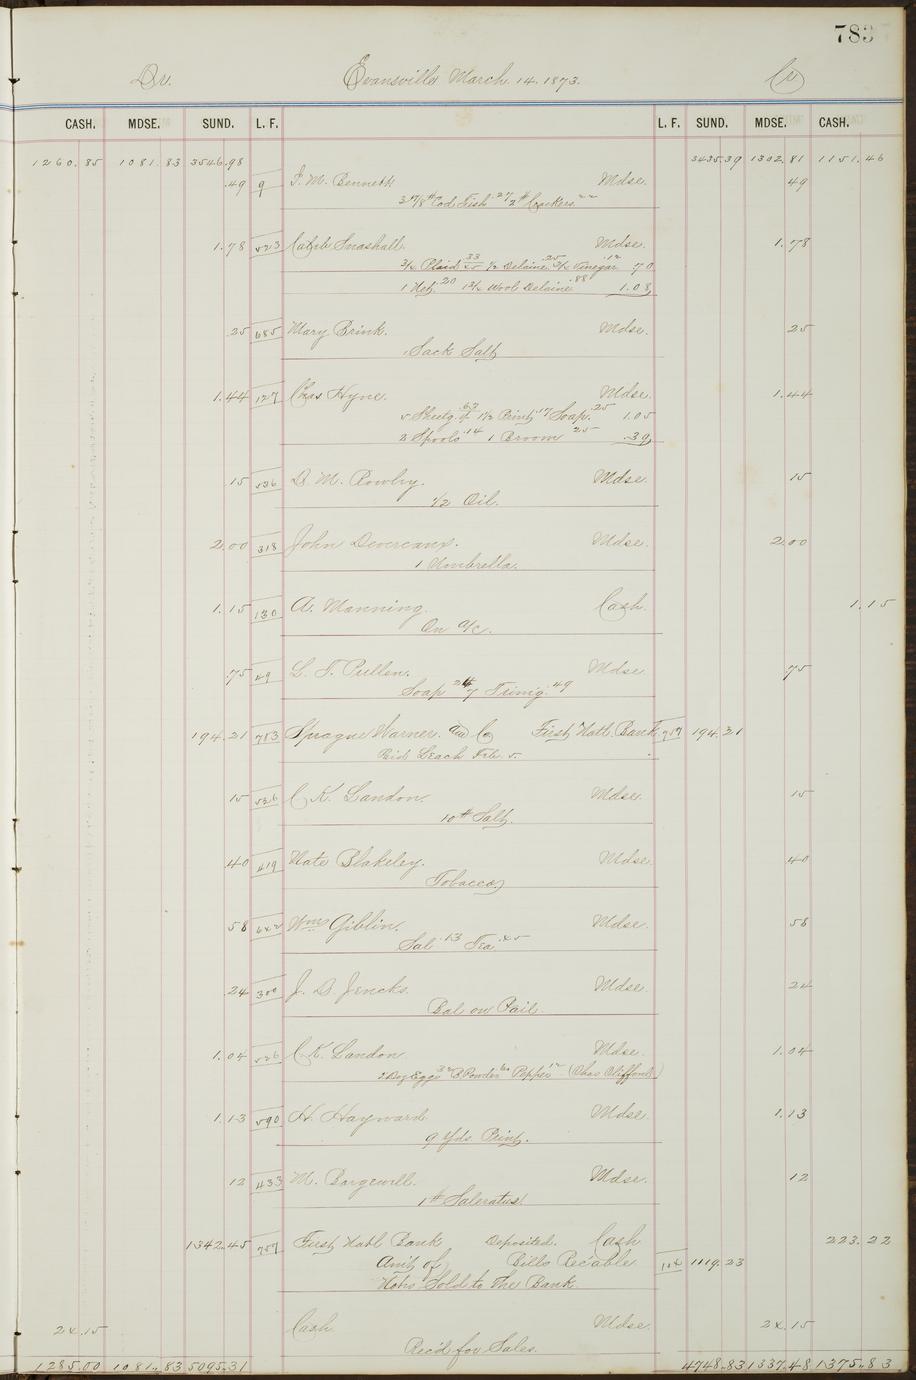 783
Dr. Evansville March 14. 1873. Cr
CASH. MDSE. SUND. L. F. L. F. SUND. MDSE. CASH.
1260.85 1081.83 3546.98 3435.39 1302.81 1151.46
.49 9 J. M. Bennett Mdse. 49
3 7/8 # Cod Fish .27 2# Crackers
1.78 523 Caleb Snashall. Mdse. 1.78
Plaid 33 1/2 Delaine .25 Vinegar .12 70
1 .20 Wool Delaine .88 1.08
.25 685 Mary Brink. Mdse. 25
1 Sack Salt
1.44 127 Chas Hyne. Mdse. 1.44
5 Sheetg. 1 1/2 Print .17 Soap. .25 1.05
2 Spools .14 1 Broom 25 .39
15 536 D. M. Rowley. Mdse. 15
1/2 Oil.
2.00 318 John Devereaux. Mdse. 2.00
1 Umbrella.
1.15 130 A. Manning. Cash. 1.15
On a/c.
.75 49 L. T. Pullen. Mdse 75
Soap Trimg. .49
194.21 753 Sprague Warner. and Co First Natl. Bank 757 194.21
Paid Leach Feb. 5.
15 526 C K. Landon. Mdse. 15
10# Salt.
40 419 Nate Blakeley. Mdse. 40
Tobacco
58 642 Wm Giblin. Mdse. 58
Sal .13 Tea .45
.24 300 J. D. Jencks. Mdse. 24
Bal on Pail.
1.04 526 C. K. Landon Mdse. 1.04
2 Doz Eggs B Powder Pepper (Chas Clifford)
1.13 590 H. Hayward. Mdse 1.13
9 Yds. Print.
12 433 M. Bargewell. Mdse 12
1# Saleratus.
1342.45 757 First Natl Bank Deposited. Cash 223.22
Amt of Bills Rec'able 104 1119.23
Notes Sold to the Bank.
24.15 Cash Mdse. 24.15
Rec'd for Sales.
1285.00 1081.83 5095.31 4748.83 1337.48 1375.83